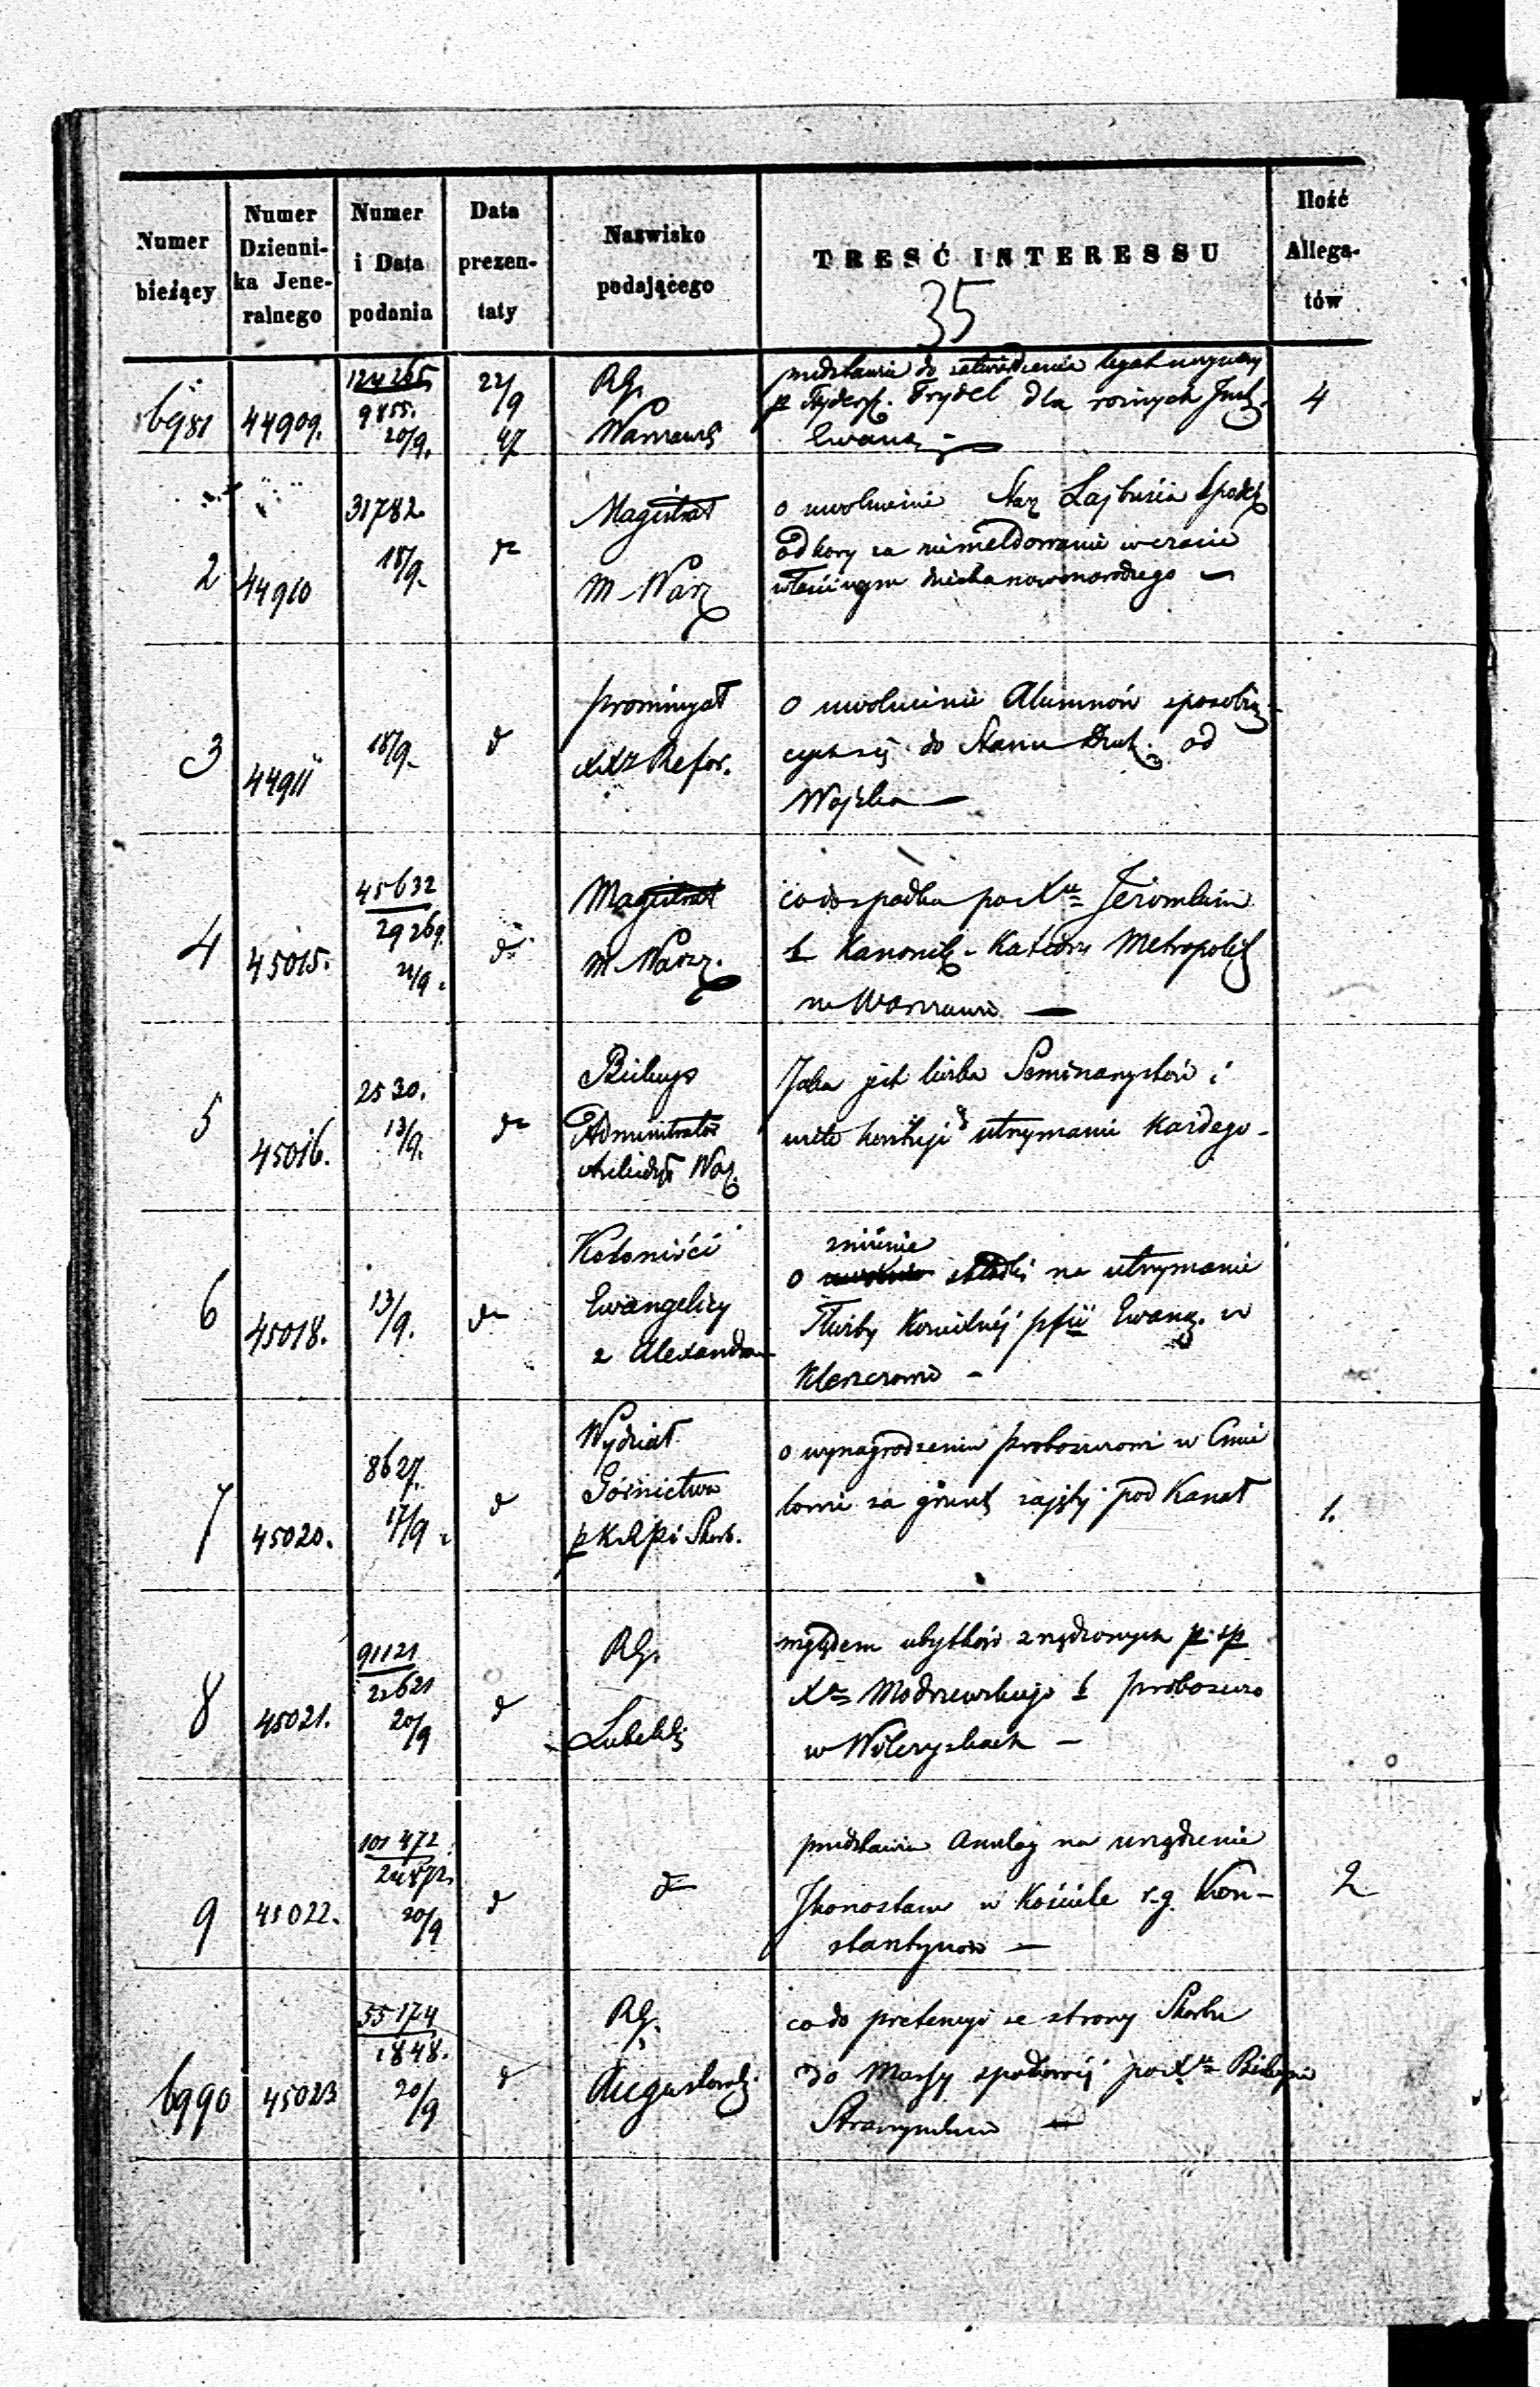 Numer bieżący
Numer Dzienni-
ka Jene-
ralnego
Numer i Data podania
Data prezen-
taty
Nazwisko podającego
TREŚĆ INTERESSU
Ilość Allega-
tów
35
6981 44909. 124265 9855. 20/9. 22/9 47 RG. Warszaws
przedstawia do zatwierdzenia legat uczyniony
p Fryder. Frydel dla różnych Inst.
Ewang. -
4
2 44910 31782. 18/9. do Magistrat
m. Warsz
o uwolnienie Star. Lajbusia
od kary za niemeldowanie w czasie
właściwym dziecka nowonarodzego -
3 44911 18/9. d prowincyał
XXr Refor.
o uwolnienie Alumnów sposobią-
cych się do Stanu Duch. od
Wojska -
4 45015. 45632 29269. 21/9. do Magistrat
m. Warsz.
co do spadku po Xu
b Kanonik. Katedry Metropolit
w Warszawie -
5 45016. 2530. 13/9. do Biskup
Administrator
Archidyec War.
Jaka jest liczba Seminarzystów i
wiele kosztuje utrzymanie każdego -
6 45018. 13/9. do Koloniści
Ewangelicy
z Alexandrow
zniżenie
o składki na utrzymanie
Służby Kościelnéj pfii Ewang. w
Kleszczowie -
7 45020. 8627. 17/9. d Wydział
Górnictwa
p KRPi Skarb.
o wynagrodzenie proboszczowi w Cmie
lowie za grunt zajęty pod Kanał
1.
8 45021. 91121 22621 20/9 d RG.
Lubelski
względem ubytków zrządzonych p. śp
Xa Modrzewskiego b proboszcza
w Wilczyskach -
9 45022. 101472 20/9 d do
przedstawia Anszlag na urządzenie
Ikonostasu w Kościele r.g. Kon-
stantynow -
2
6990 45023 55174 1848. 20/9 d RG.
Augustowski
co do pretensyi ze strony Skarbu
do Massy spadkowéj po Xu Biskupie